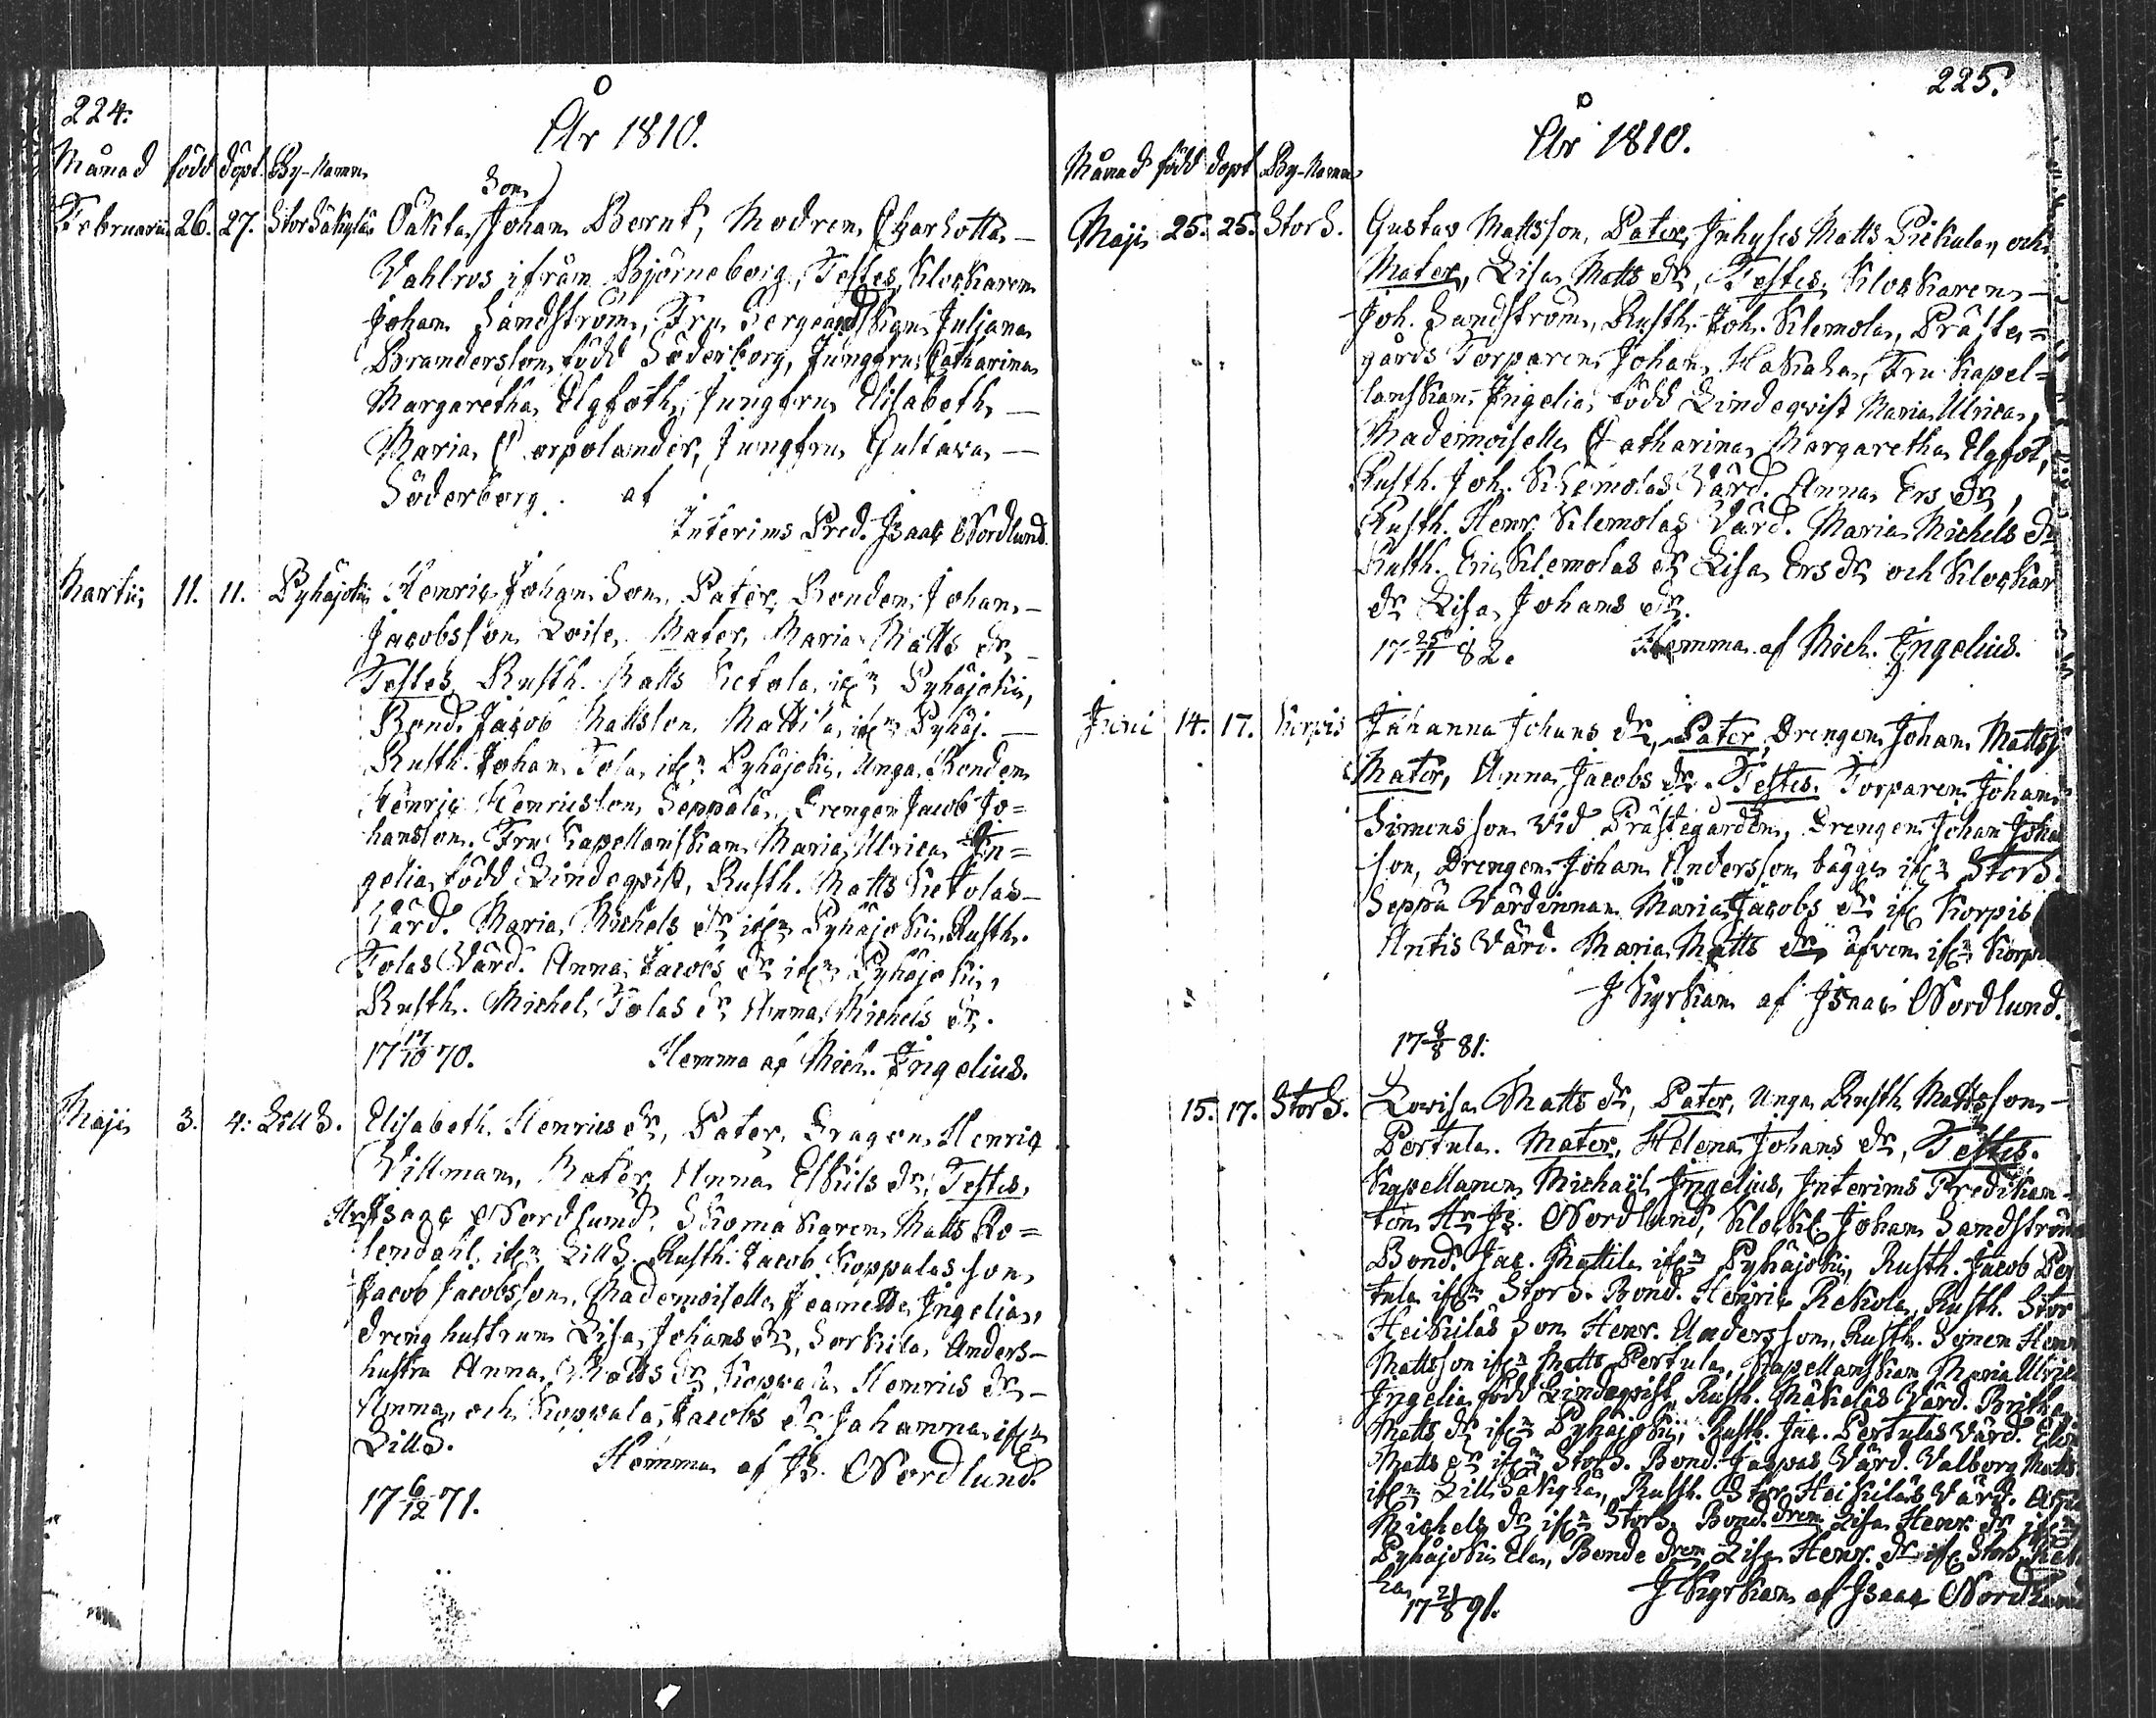 224.
År 1810.
Månad född döpt. By-Namn
Son
Februarii 26. 27. StorSäkylä Oäkta Johan Bernt, Modren Charlotta
Vahlros ifrån Björneborg, Testes, Klockaren
Johan Sandström, Fru Sergeandskan Juliana
Branderslon, född Söderborg, Jungfru Catharina
Margaretha Elgfoth, Jungfru Elisabeth
Maria Corpolander, Jungfru Gustava
Söderborg. af
Interims Pred. Isaac Nordlund.
Martii 11. 11. Pyhäjoki Henric Johan Son, Pater, Bonden Johan
Jacobsson Loise, Mater, Maria Matts dr
Testes, Rusth. Matts Ketola, ifrn Pyhäjoki,
Bond. Jacob Mattsson Mattila, ifrn Pyhäj.
Rusth. Johan Tola, ifrn Pyhäjoki, Unga Bonden
Henric Henricsson Seppälä, Drengen Jacob Jo=
hansson. Fru Kapellanskan Maria Ulrica In=
gelia född Lindeqvist, Rusth. Matts Ketolas
Värd. Maria Michels dr ifrn Pyhäjoki, Rusth.
Tolas Värd. Anna Jacobs dr ifrn Pyhäjoki,
Rusth. Michel Tolas dr Anna Michels dr.
17 17/10 70. Hemma af Mich. Ingelius.
Maji 3. 4. Lill S. Elisabeth Henrics dr, Pater, Dragon Henric
Villman, Mater, Anna Eskils dr, Testes,
Hr Isaac Nordlund, Skomakaren Matts Ro=
sendahl, ifrn Lill S. Rusth. Jacob Koppalas son
Jacob Jacobsson, Mademoiselle Jeanette Ingelia,
dreng hustrun Lisa Johans dr, Sorkila Anders
hustru Anna Matts dr Henrics dr
Anna, och Jacobs dr Johanna ifrn
Lill S.
Hemma af Is. Nordlund.
17 6/12 71.
225.
År 1810.
Månad född dopt By-Namn
Maji 25. 25. Stor S. Gustav Mattsson, Pater, Inhyses Matts Pickala, och
Mater, Lisa Matts dr, Testes, Klockaren
Joh. Sandström, Rusth. Joh. Klemola, Präste=
gårds Torparen Johan Hakala, Fru Kapel=
lanskan Ingelia, född Lindeqvist Maria Ulrica,
Mademoiselle Catharina Margaretha Elgfot,
Rusth. Joh. Klemolas Värd. Anna Ers dr,
Rusth. Henr. Klemolas Värd. Maria Michels dr
Rusth. Eric Klemolas dr Lisa Ers dr och Klockar
dr Lisa Johans dr.
17 25/11 82. Hemma af Mich. Ingelius.
Juni 14. 17. Korpis Johanna Johans dr, Pater, Drengen Johan Matts
Mater, Anna Jacobs dr. Testes. Torparen Johan
Simonsson vid Prästegården, Drengen Johan Johan
son, Drengen Johan Andersson bägge ifrn Stor S.
Seppä Värdinnan Maria Jacobs dr ifr Korpis
Antis Värd. Maria Matts dr äfven ifrn Korp
I Kyrkan af Isaac Nordlund.
17 8/8 81.
15. 17. Stor S. Lovisa Matts dr, Pater, Unga Rusth. Mattsson
Pertula. Mater, Helena Johans dr, Testes.
Kapellanen Michaël Ingelius, Interims Predikan=
ten Hr Is. Nordlund, Klock. Johan Sandström
Bond. Jac. Mattila ifrn Pyhäjoki, Rusth. Jacob Per
tula ifrn Stor S. Bond. Henric Rekola, Rusth. Stor
Heikiläs Son Henr. Andersson, Rusth. Sonen Henr
Mattsson ifrn Matts Pertula, Kapellanskan Maria Ulrica
Ingelia född Lindeqvist, Rusth. Mäkeläs Värd. Britha
Matts dr ifrn Pyhäjoki, Rusth. Jac. Pertulas Värd.
Matts dr ifrn Stor S. Bond. Jaspas Värd. Valborg Matts
ifrn LillSäkylä, Rusth. Stor Heikiläs Värd.
Michels dr ifrn Stor S. Bond. dren Lisa Henr. dr ifrn
Pyhäjoki Ela, Bonde dren Lisa Henr. dr ifr Stor S.
la,
17 21/8 91. I Kyrkan af Isaac Nordlund